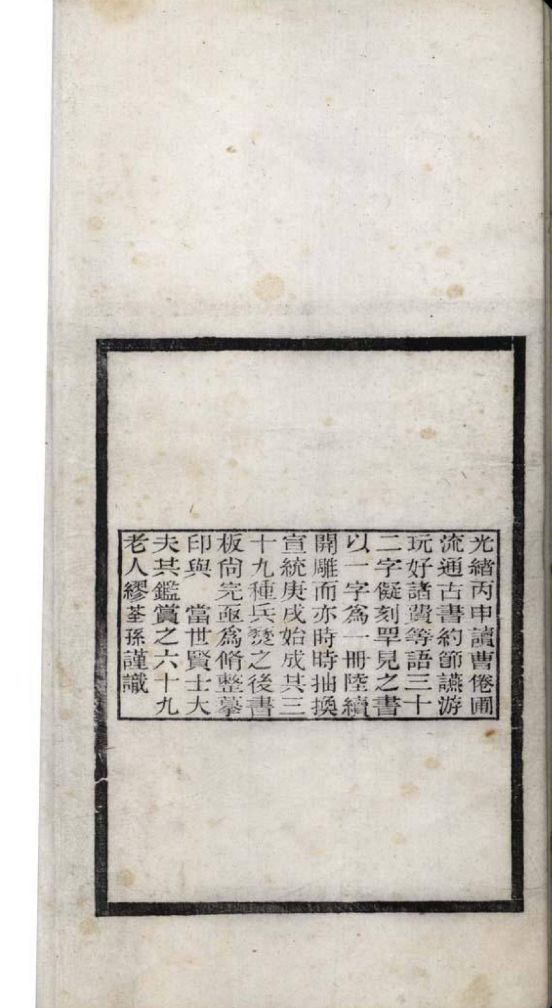 光緒丙申讀曹倦圃
流通古書約節讌游
玩好諸費等語三十
二字儗刻罕見之書
以一字為一冊陸續
開雕而亦時時抽換
宣統庚戌始成共三
十九種兵燹之後書
板尙完亟為脩整摹
印與　當世賢士大
夫共鑑賞之六十九
老人繆荃孫謹識